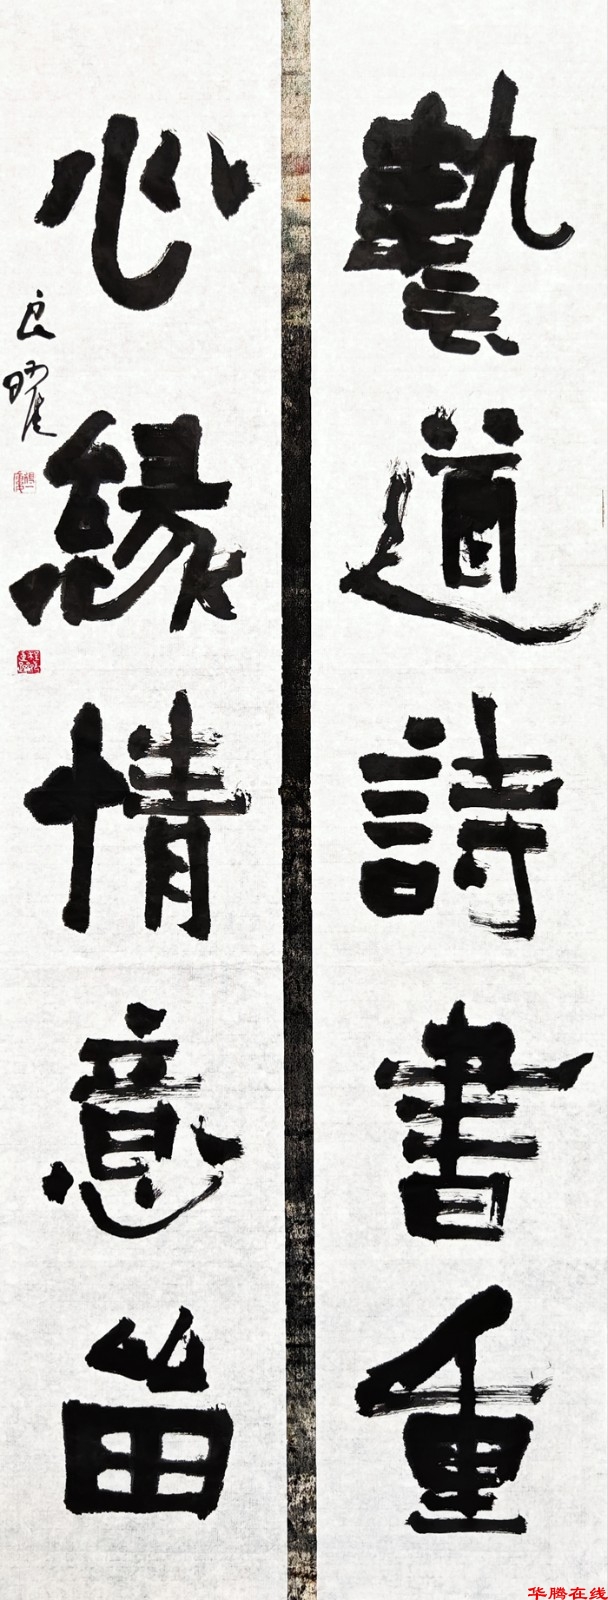 藝道詩書重
心緣情意留
良曜
华腾在线